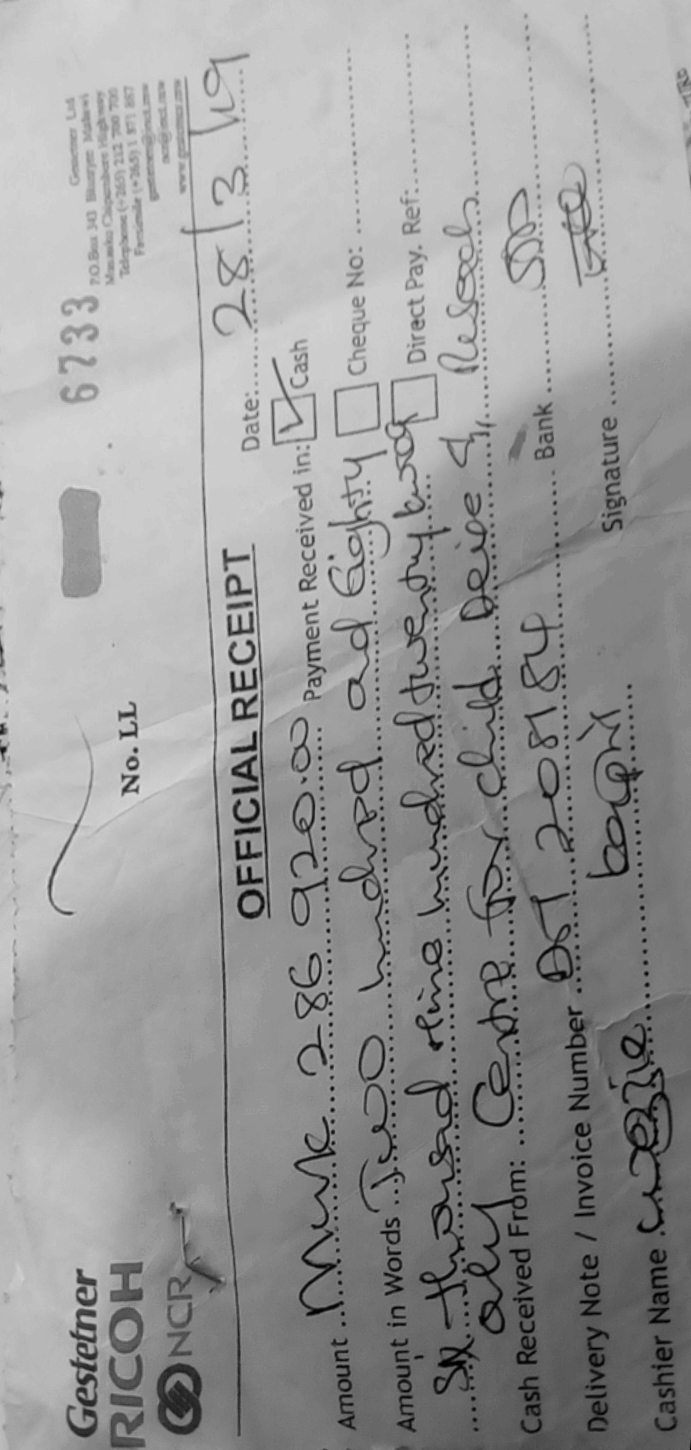 Gestetner
RICOH
NCR
No. LL
6733
Gestetner Ltd
P.O.Box 343 Blantyre Malawi
Masauko Chipembere Highway
Telephone (+265) 212 700 700
Facsimile (+265) 1 871 887
www.gestetner.mw
OFFICIAL RECEIPT
Date: 28/3/19
Amount MWK 286 920.00 Payment Received in: Cash
Amount in Words Two hundred and Eighty Cheque No:
Six thousand nine hundred twenty kwacha Direct Pay. Ref:
only
Cash Received From: Centre for child
Delivery Note / Invoice Number 208184 Bank
Cashier Name Signature